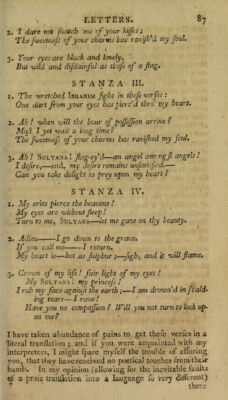 LETTERS. 87
2. I dare not snatch one of your kisses;
The sweetness of your charms has ravish'd my soul.
3. Your eyes are black and lovely,
But wild and disdainful as those of a stag.
STANZA III.
1. The wretched IBRAHIM sighs in these verses:
One dart from your eyes has pierc'd thro' my heart.
2. Ah! when will the hour of possession arrive?
Must I yet wait a long time?
The sweetness of your charms has ravished my soul.
3. Ah! SULTANA! stag-ey'd—an angel amongst angels!
I desire,—and, my desire remains unsatisfied.—
Can you take delight to prey upon my heart?
STANZA IV.
1. My cries pierce the heavens!
My eyes are without sleep!
Turn to me, SULTANA—let me gaze on thy beauty.
2. Adieu——I go down to the grave.
If you call me——I return.
My heart is—hot as sulphur;—sigh, and it will flame.
3. Crown of my life! fair light of my eyes!
My SULTANA! my princess!
I rub my face against the earth;—I am drown'd in scald-
ing tears—I rave!
Have you no compassion? Will you not turn to look up-
on me?
I have taken abundance of pains to get these verses in a
literal translation; and if you were acquainted with my
interpreters, I might spare myself the trouble of assuring
you, that they have received no poetical touches from their
hands. In my opinion (allowing for the inevitable faults
of a prose translation into a language so very different)
there